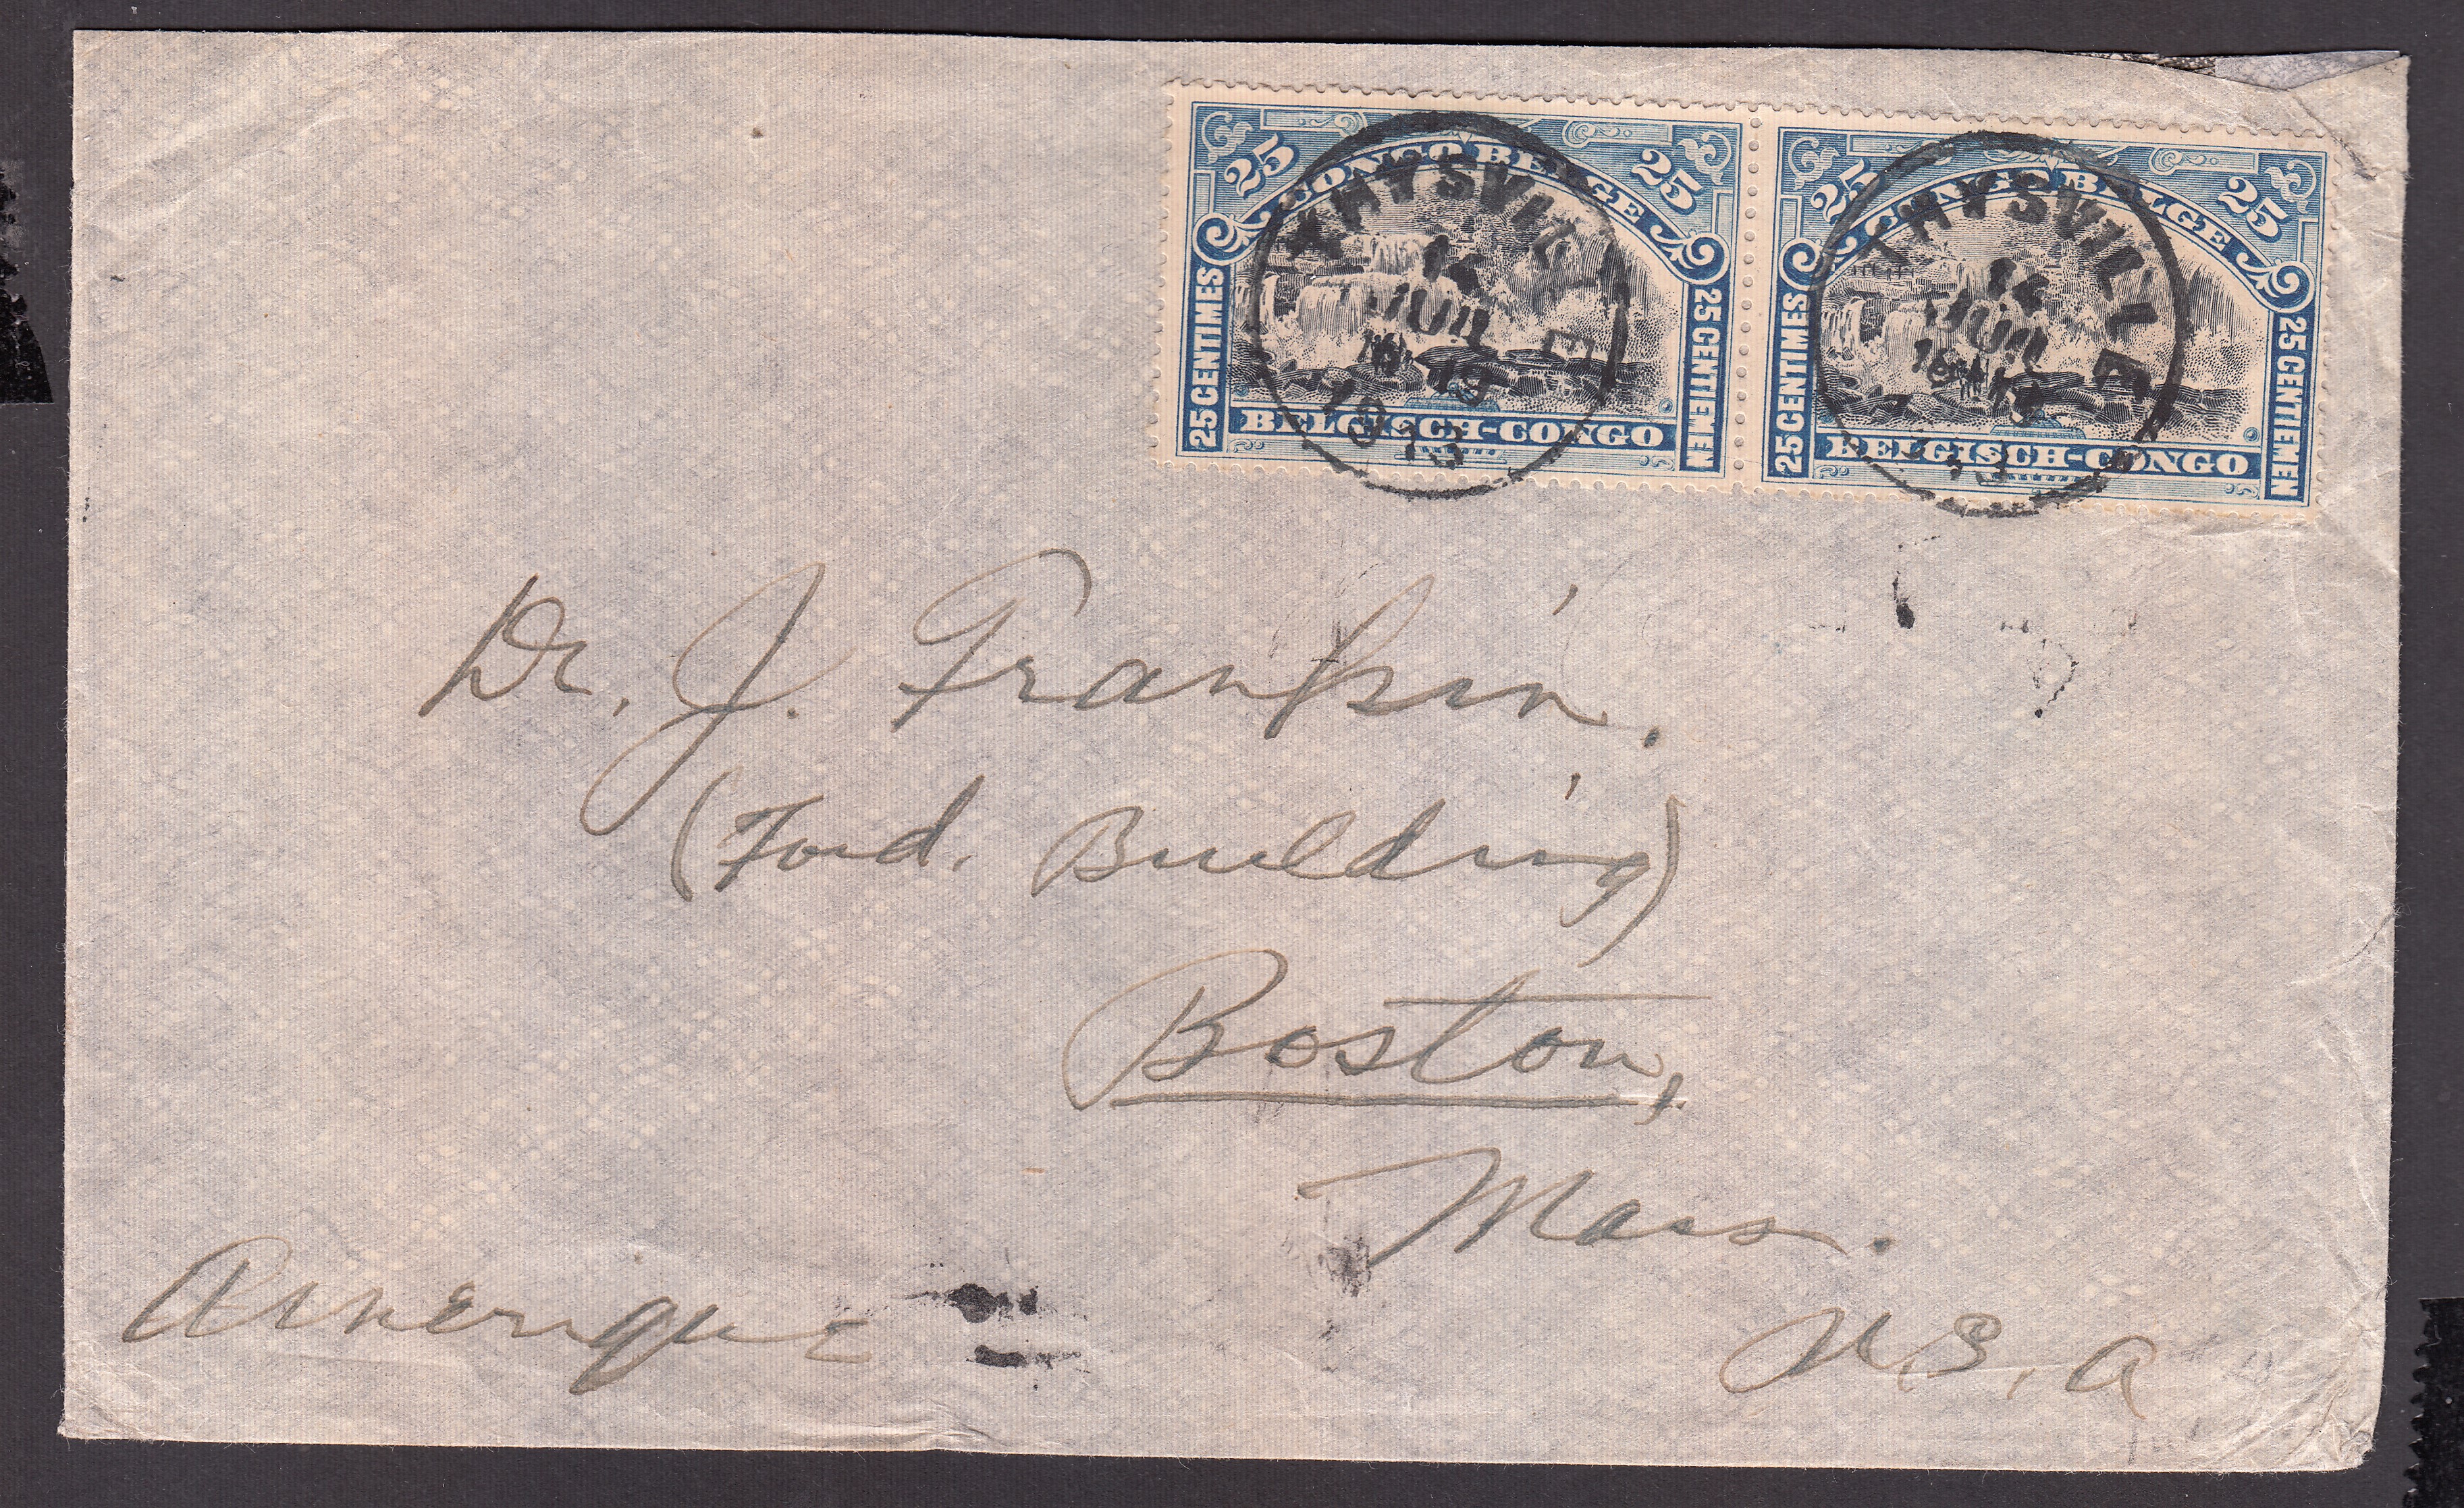 25 CONGO BELGE 25
25 CENTIMES
25 CENTIEMEN
BELGISCH-CONGO
25 CONGO BELGE 25
25 CENTIMES
25 CENTIEMEN
BELGISCH-CONGO
THYSVILLE
14
1913
THYSVILLE
14
Dr. J. Franklin.
(Ford. Building)
Boston,
Mass.
Amerique
U.S.A